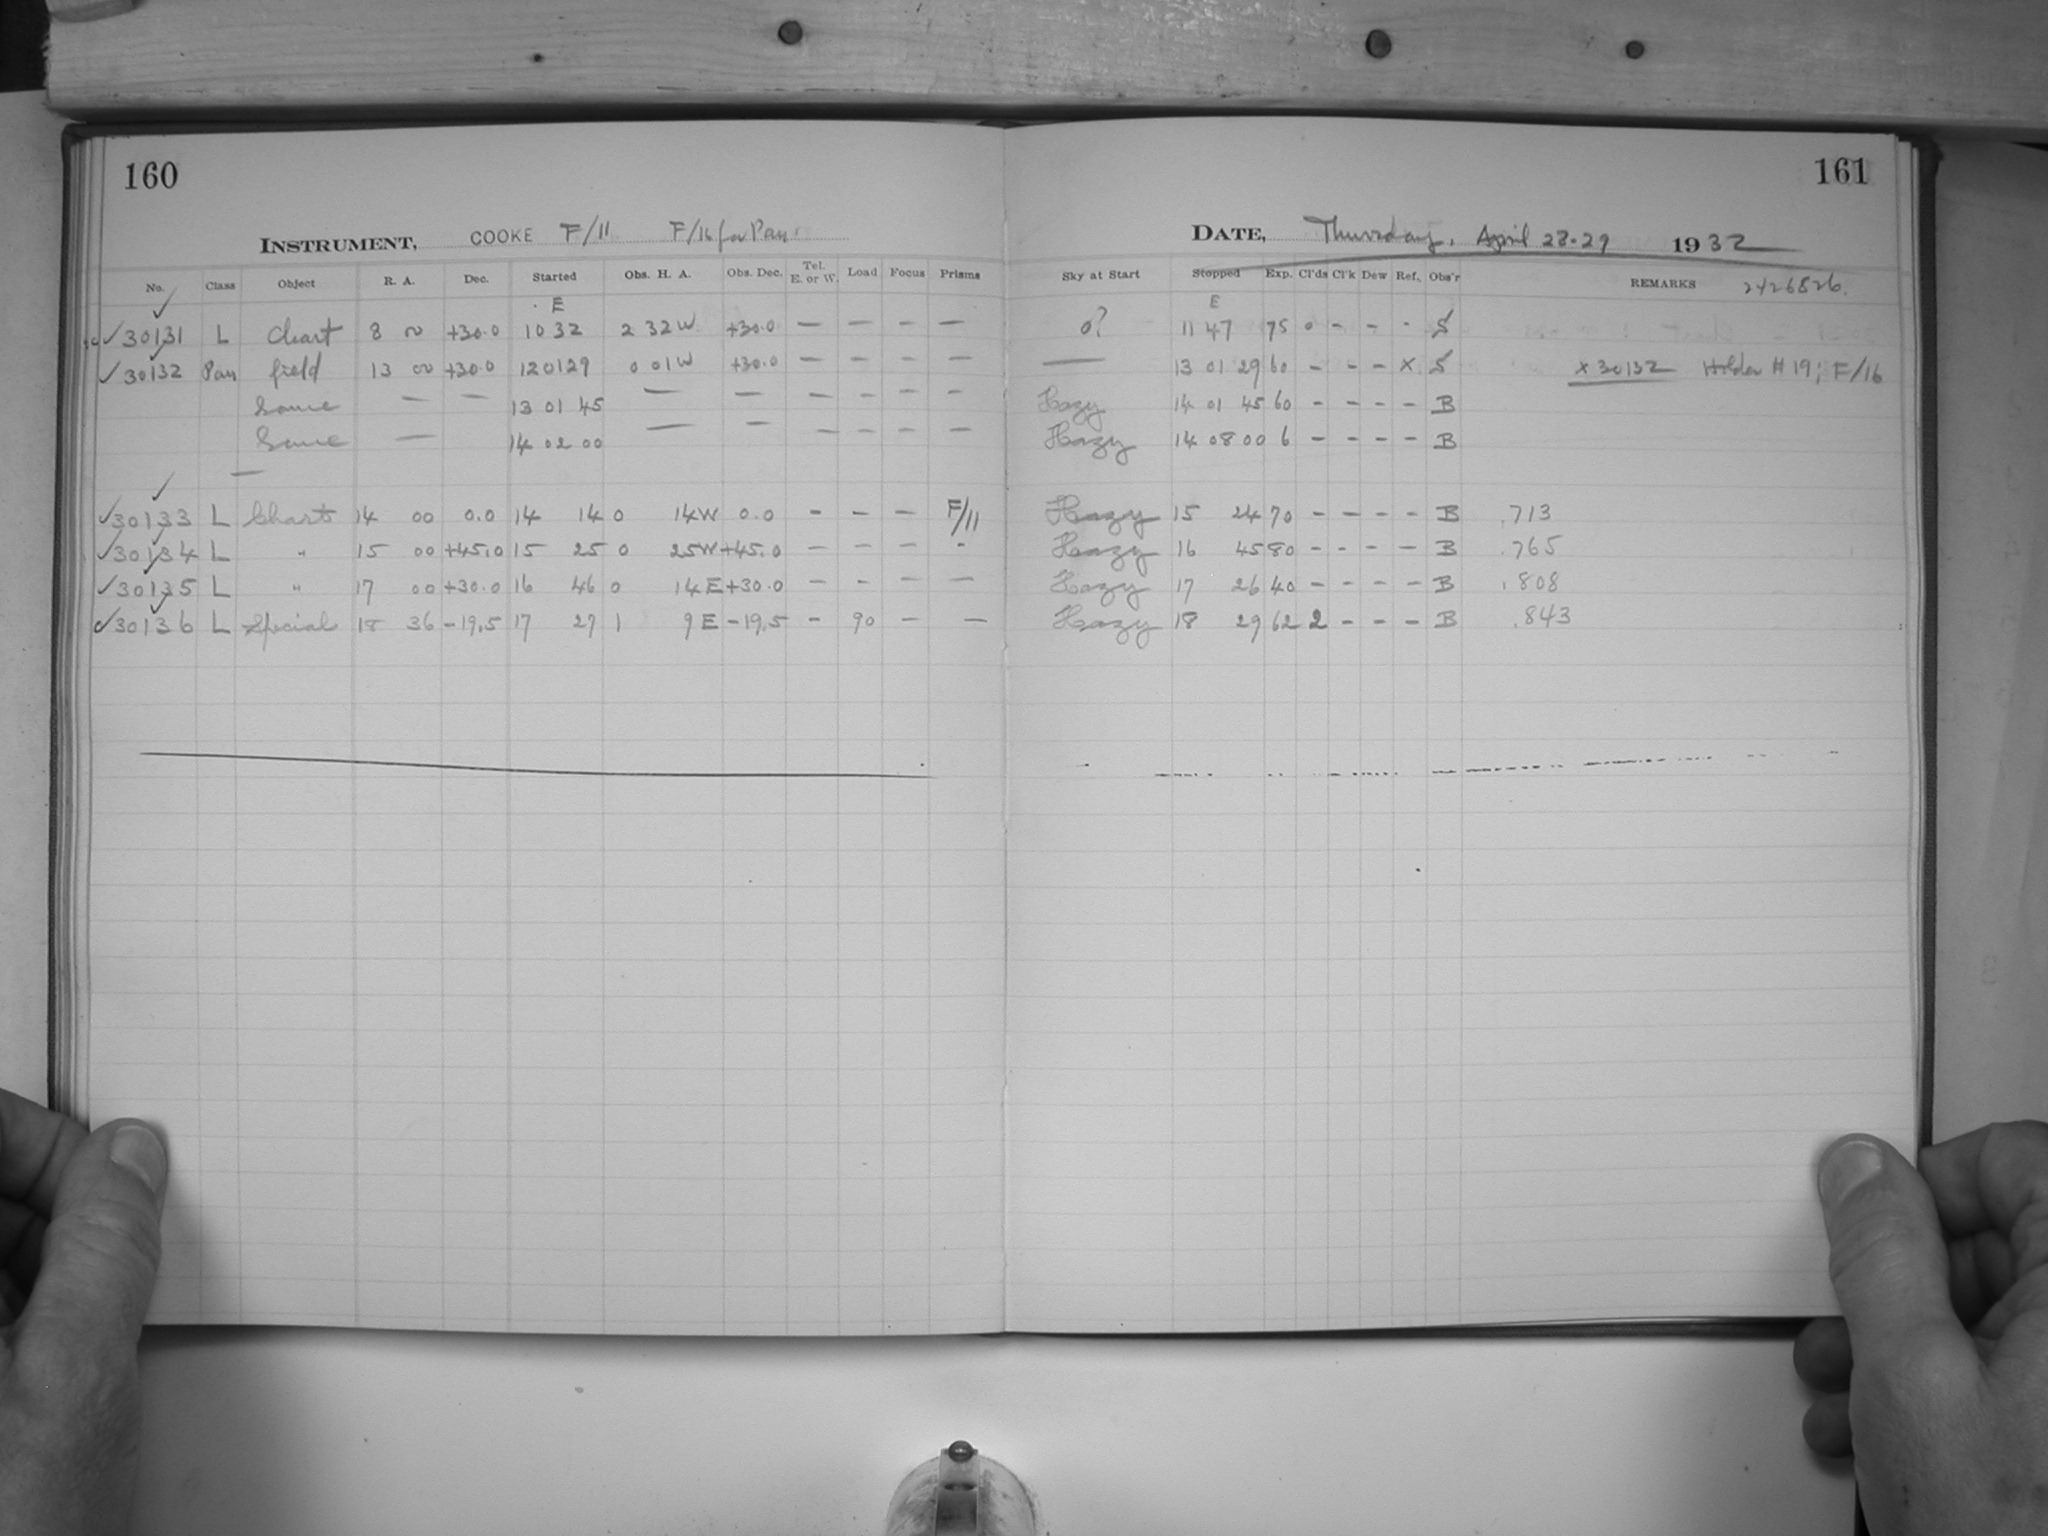 160
INSTRUMENT, COOKE F/11 F/16 for Pan.
No. Class Object R. A. Dec. Started Obs. H. A. Obs. Dec. Tel. E. or W. Load Focus Prisms
E
✓30131 L Chart 8 00 +30.0 10 32 2 32W +30.0 — — — —
✓30132 Pan field 13 00 +30.0 12 01 29 0 01W +30.0 — — — —
Same — — 13 01 45 — — — — — —
Same — 14 02 00 — — — — — —
—
✓30133 L Chart 14 00 0.0 14 14 0 14W 0.0 - - - F/11
✓30134 L " 15 00 +45.0 15 25 0 25W +45.0 - - - -
✓30135 L " 17 00 +30.0 16 46 0 14E +30.0 - - - -
✓30136 L Special 18 36 -19.5 17 27 1 9E -19.5 - 90 - -
161
DATE, Thursday, April 28-29 1932
Sky at Start Stopped Exp. Cl'ds Cl'k Dew Ref. Obs'r REMARKS 2426826.
E
0? 11 47 75 0 - - - S
— 13 01 29 60 - - - x S x 30132 Holder #19; F/16
Hazy 14 01 45 60 - - - - B
Hazy 14 08 00 6 - - - - B
Hazy 15 24 70 - - - - B .713
Hazy 16 45 80 - - - - B .765
Hazy 17 26 40 - - - - B .808
Hazy 18 29 62 2 - - - B .843